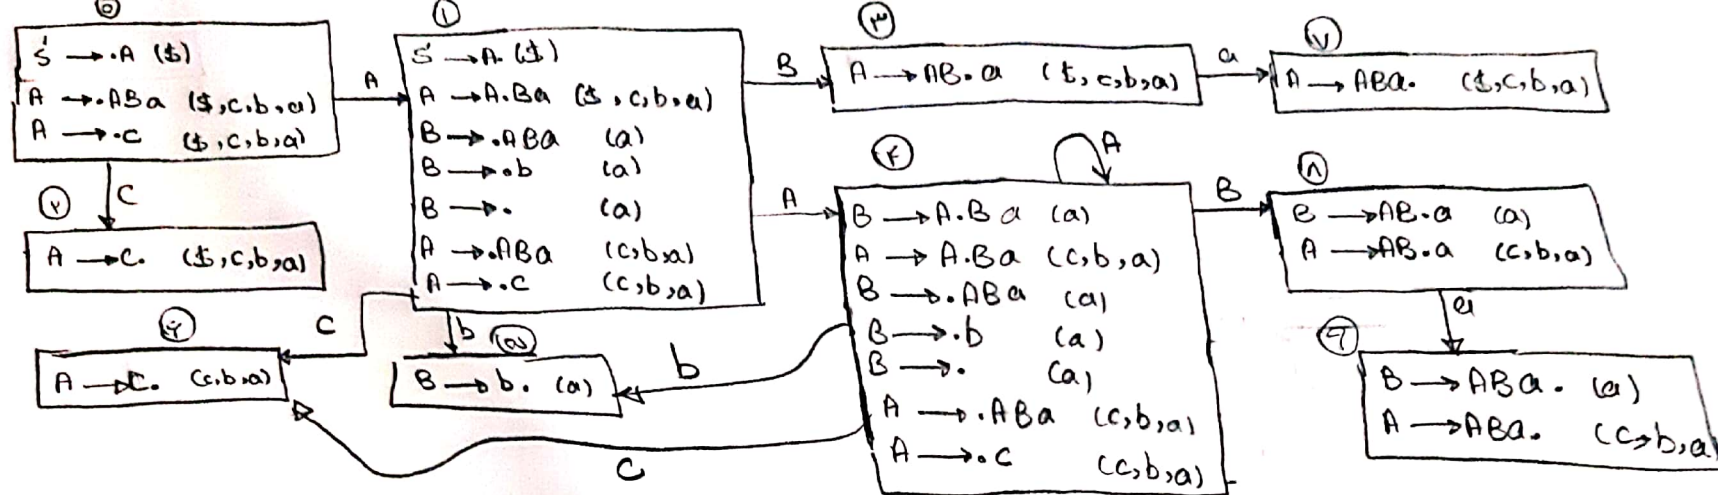 ۰
S' → .A ($)
A → .ABa ($,c,b,a)
A → .C ($,c,b,a)
A
C
۱
S' → A. ($)
A → A.Ba ($,c,b,a)
B → .ABa (a)
B → .b (a)
B → . (a)
A → .ABa (c,b,a)
A → .C (c,b,a)
B
۳
A → AB.a ($,c,b,a)
a
۷
A → ABa. ($,c,b,a)
۲
A → C. ($,c,b,a)
A
۴
A
B → A.Ba (a)
A → A.Ba (c,b,a)
B → .ABa (a)
B → .b (a)
B → . (a)
A → .ABa (c,b,a)
A → .C (c,b,a)
B
۸
B → AB.a (a)
A → AB.a (c,b,a)
a
C
A → C. (c,b,a)
b
۵
B → b. (a)
b
C
B → ABa. (a)
A → ABa. (c,b,a)